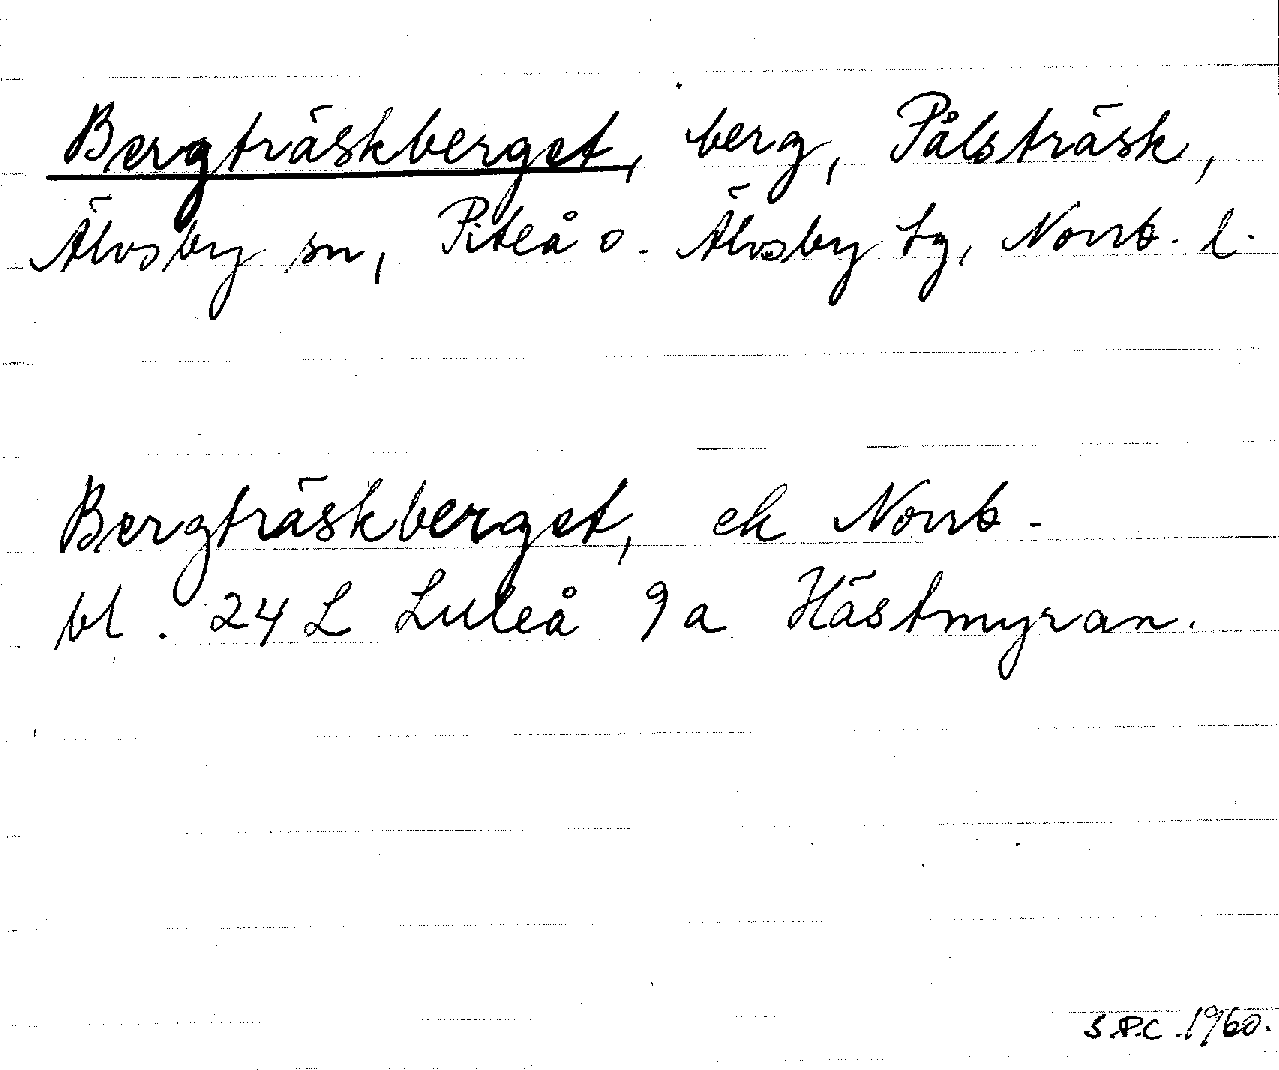 Bergträskberget, berg, Pålsträsk,
Älvsby sn, Piteå o. Älvsby tg, Norrb. l.
Bergträskberget, ek Norrb.
bl. 24 L Luleå 9 a Hästmyran.
1960.